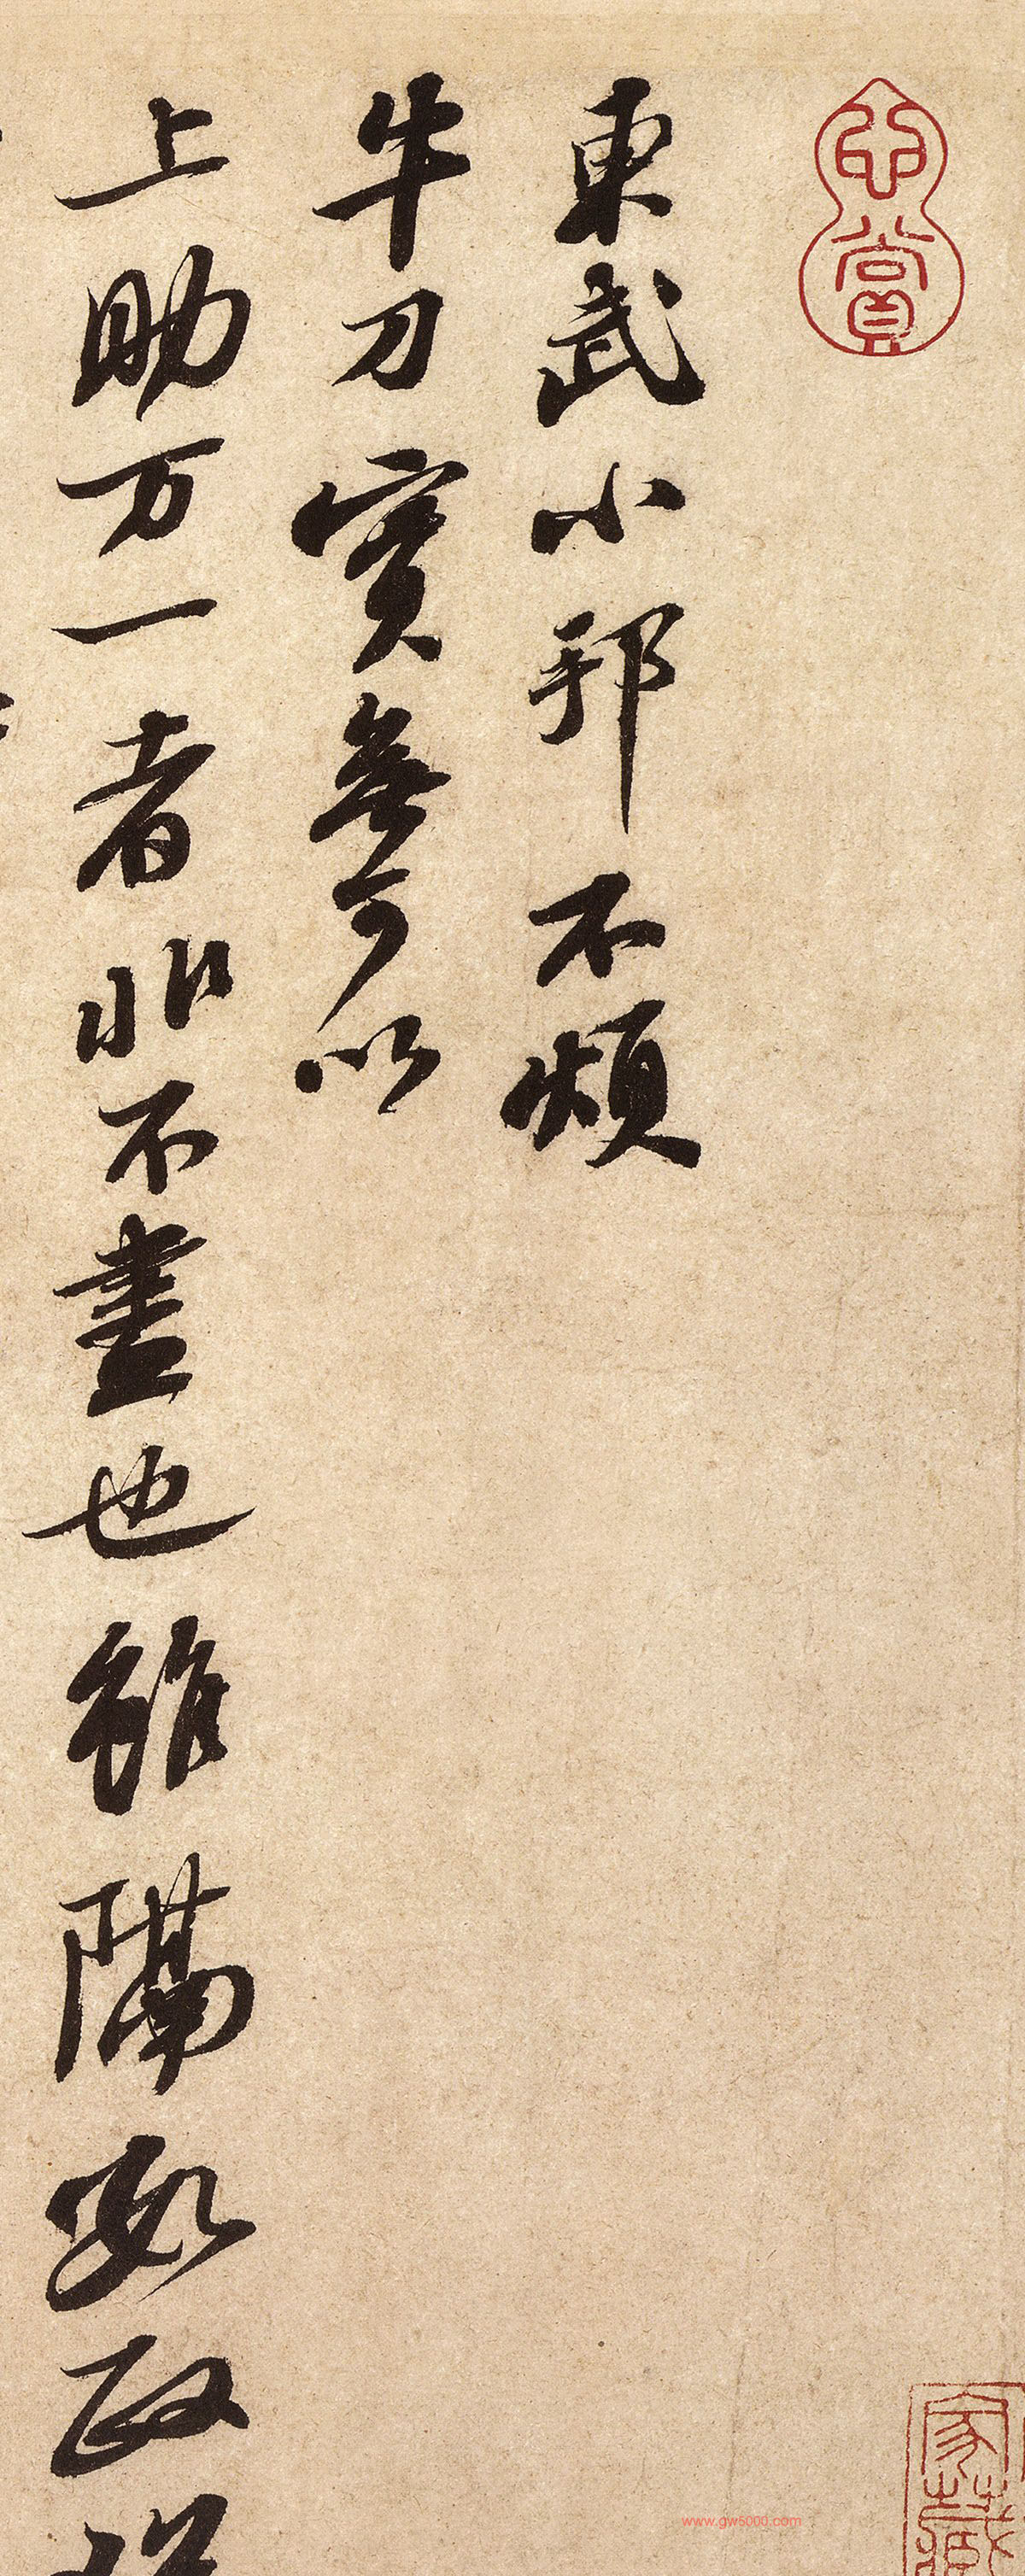 心賞
東武小邦不煩
牛刀實無可以
上助万一者非不盡也雖隔數政
家藏
www.gw5000.com